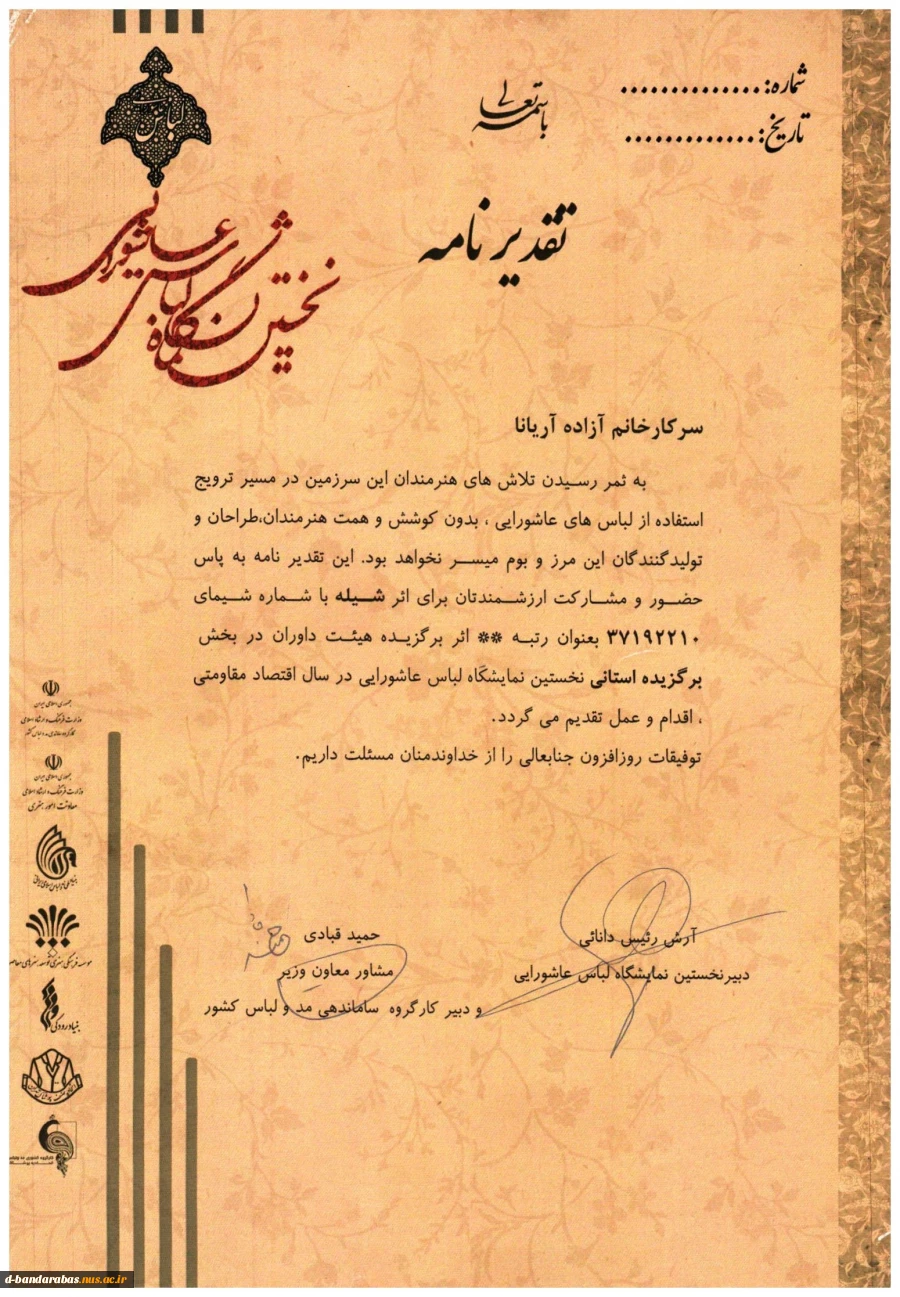 باسمه تعالی
شماره: ..............
تاریخ: .............
تقدیر نامه
لباس عاشورایی
نخستین نمایشگاه لباس عاشورایی
سرکارخانم آزاده آریانا
به ثمر رسیدن تلاش های هنرمندان این سرزمین در مسیر ترویج
استفاده از لباس های عاشورایی ، بدون کوشش و همت هنرمندان،طراحان و
تولیدگنندگان این مرز و بوم میسر نخواهد بود. این تقدیر نامه به پاس
حضور و مشارکت ارزشمندتان برای اثر شیله با شماره شیمای
۳۷۱۹۲۲۱۰ بعنوان رتبه ** اثر برگزیده هیئت داوران در بخش
برگزیده استانی نخستین نمایشگاه لباس عاشورایی در سال اقتصاد مقاومتی
، اقدام و عمل تقدیم می گردد.
توفیقات روزافزون جنابعالی را از خداوندمنان مسئلت داریم.
آرش رئیس دانائی
دبیرنخستین نمایشگاه لباس عاشورایی
حمید قبادی
مشاور معاون وزیر
و دبیر کارگروه ساماندهی مد و لباس کشور
جمهوری اسلامی ایران
وزارت فرهنگ و ارشاد اسلامی
کارگروه ساماندهی مد و لباس کشور
جمهوری اسلامی ایران
وزارت فرهنگ و ارشاد اسلامی
معاونت امور هنری
بنیاد رودکی
d-bandarabas.nus.ac.ir